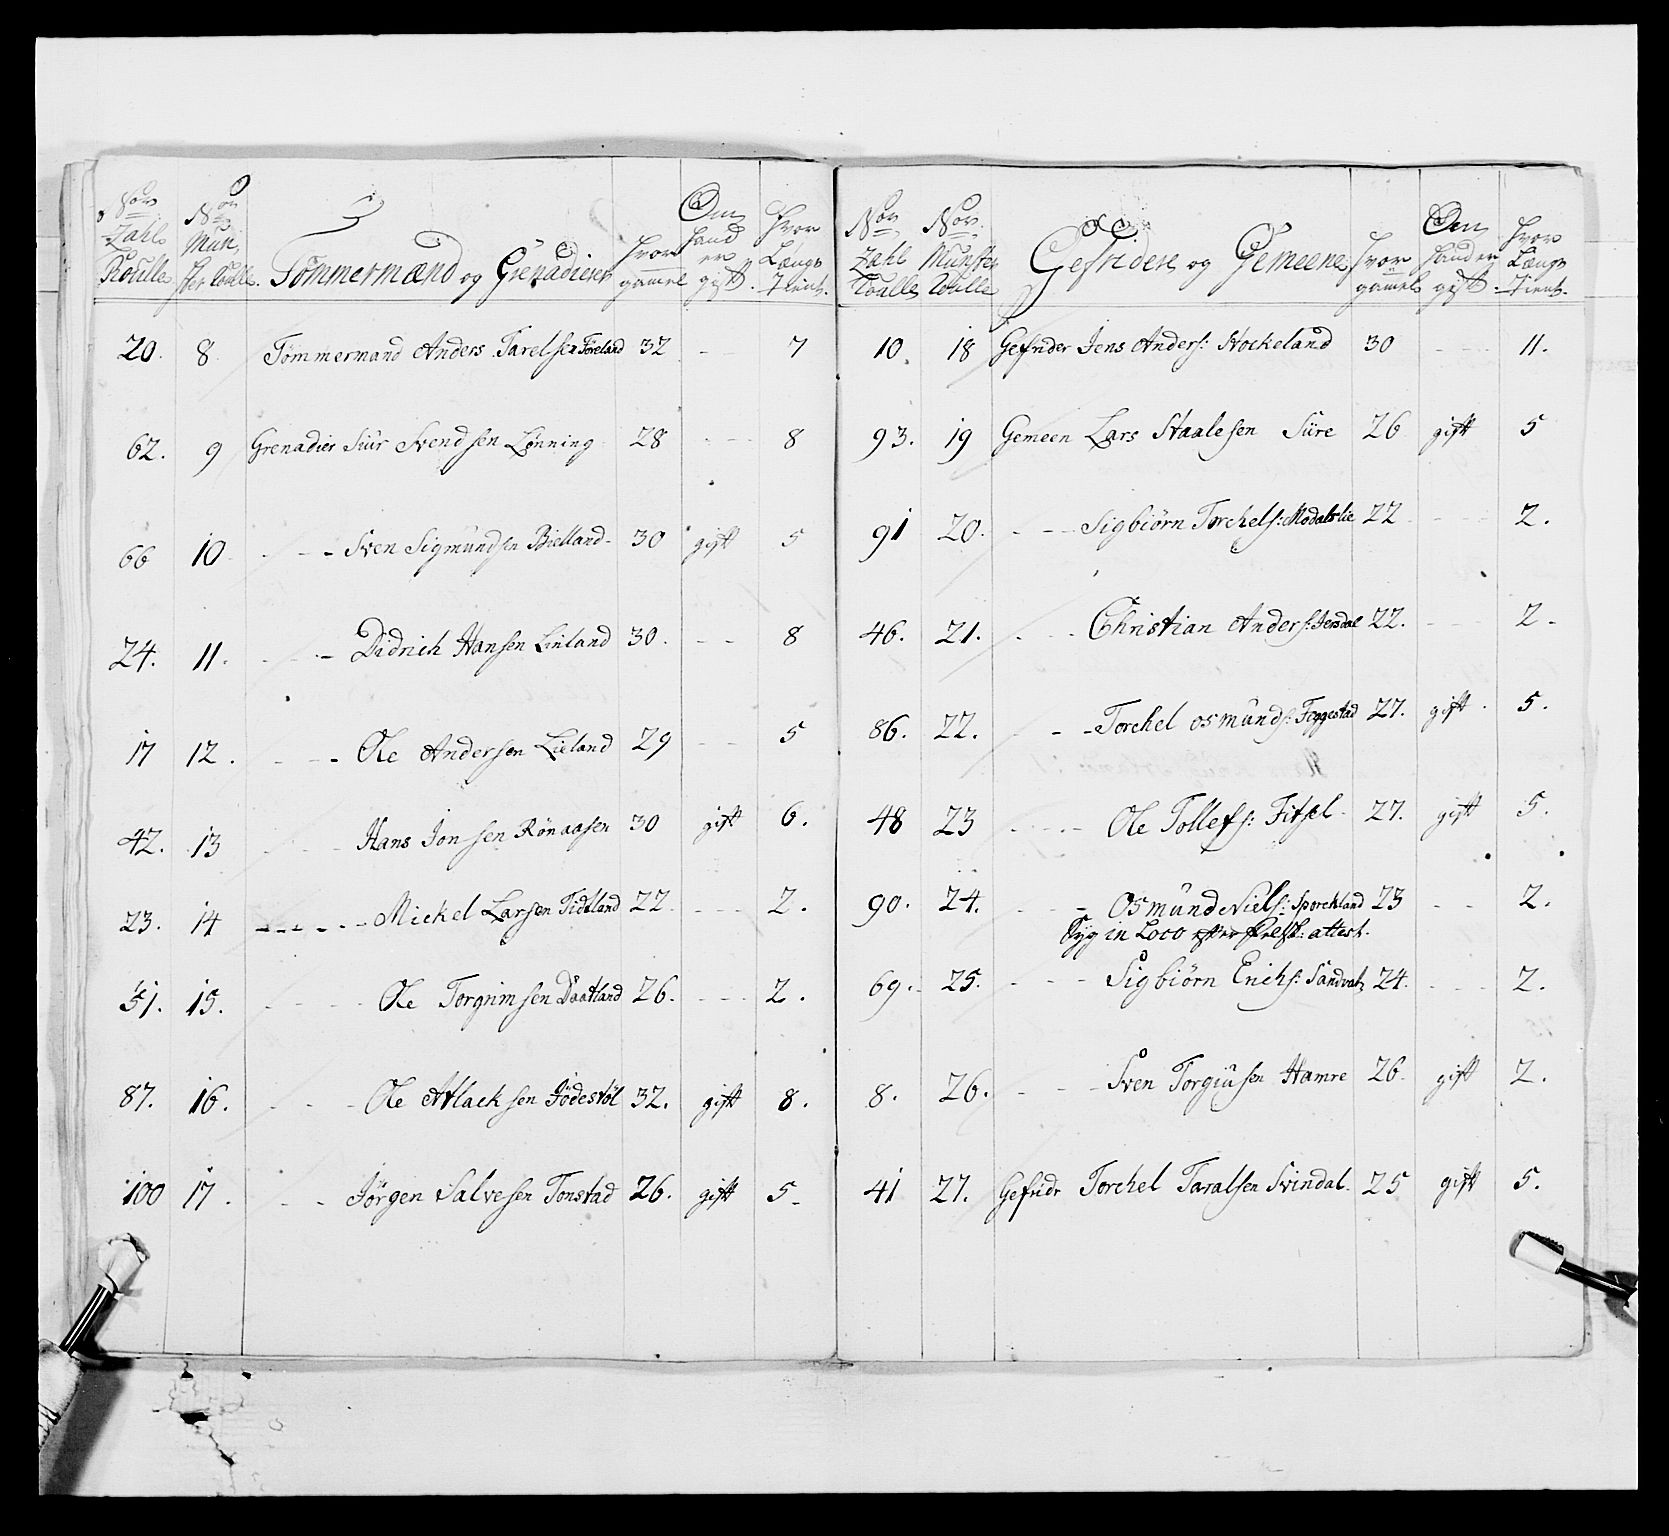 Nor Zahl Roulle Nor Mun ster Roulle. Tömmermænd og Grenaderer hvor gammel Om hand er gift. hvor Længe Tient.
20. 8 Tömmermand Anders Tarelsen Föreland 32 - 7
62. 9 Grenadier Siur Svendsen Lönning 28 - - 8
66 10 - - - Sven Sigmundsen Bielland 30 gift 5
24. 11. - - - Didrich Hansen Linland 30. - - 8
17 12. - - - Ole Andersen Lieland 29 - - 5
42. 13 - - - Hans Jonsen Rönaasen 30 gift 6.
23. 14 - - - - - Mickel Larsen Tidtland 22 - - - 2.
51. 15. - - - - Ole Torgrimsen Daatland 26. - - - 2.
87. 16. - - - Ole Atlachsen Jödestöl 32. gift 8.
100 17. - - Jörgen Salvesen Tonstad 26. gift 5
Nor Zahl Roulle Nor Munster Roulle Gefridere og Gemeene hvor gammel Om hand er gift. hvor Længe Tient.
10. 18 Gefrider Jens Anders: Stockeland 30 - - 11.
93. 19 Gemeen Lars Staalesen Sure 26 gift 5
91 20. - - - Sigbiörn Torchels: Modalslie 22 - - 2.
46. 21. - - - Christian Anders: Jerdal 22. - - 2.
86. 22. - - - Torchel Osmunds: Feggestad 27. gift. 5.
48 23 - - - - Ole Tollefs: Fitsel 27. gift 5.
90. 24. - - - Osmund Niels: Sporckland 23 - - 2.
Syg in Loco efter Prest: attest.
69. 25. - - - Sigbiörn Erichs: Sandvat 24. - - - 2.
8. 26. - - - Sven Torgiusen Hamre 26 gift 2.
41 27. Gefridr Torchel Taralsen Svindal. 25 gift 5.